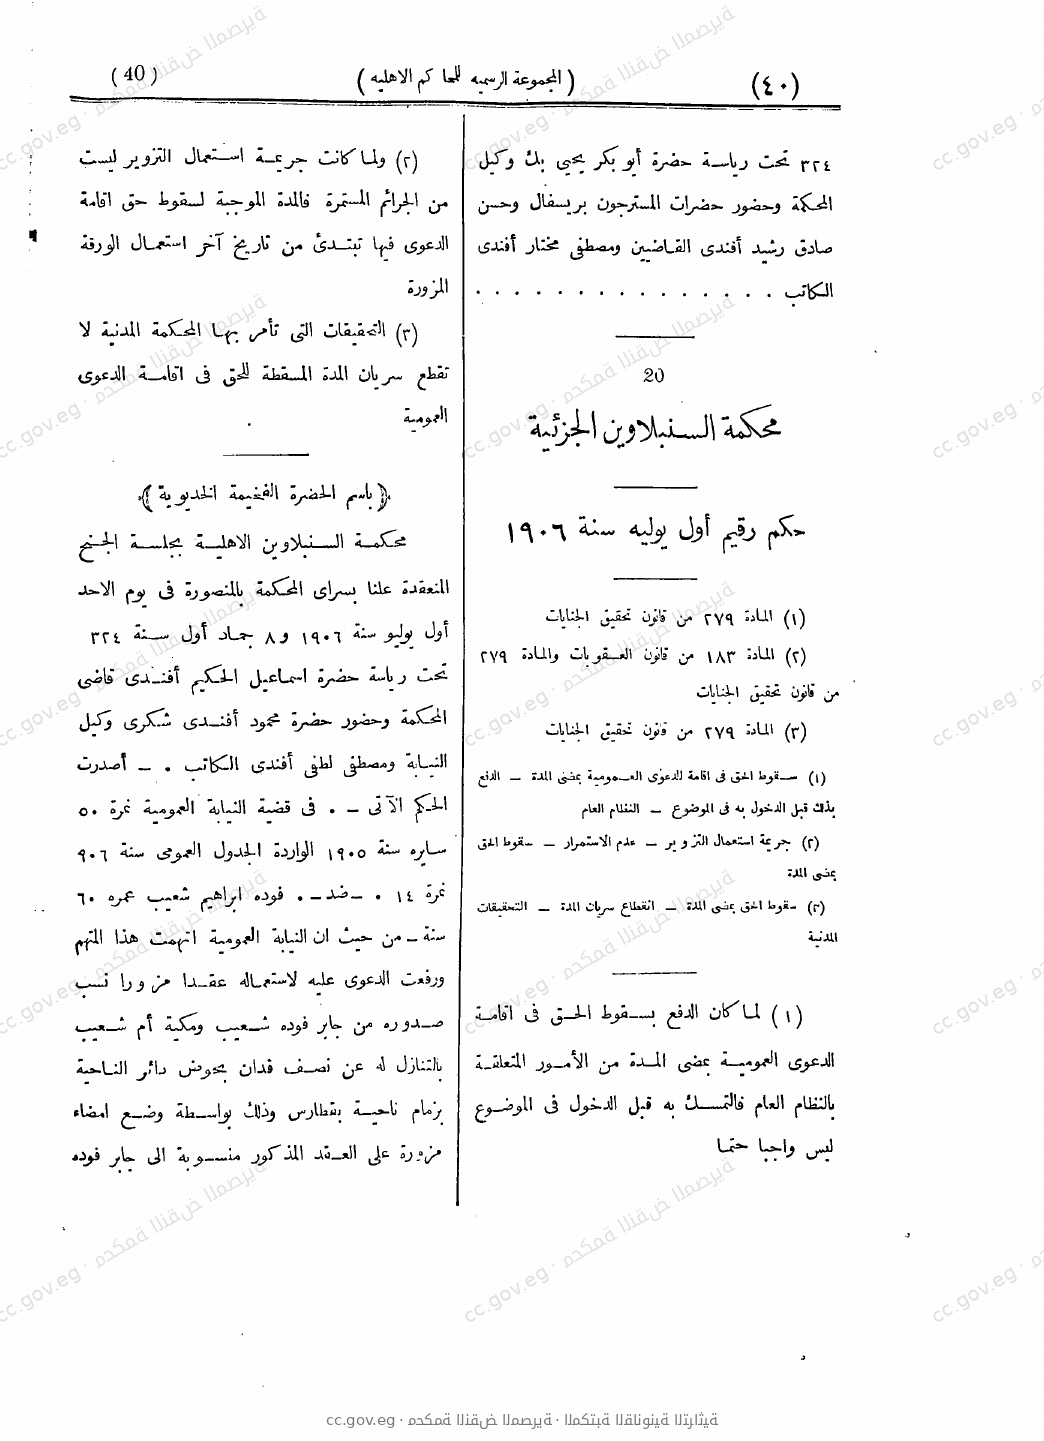 (٤٠)
(المجموعة الرسميه للمحاكم الاهليه)
(40)
٣٢٤ تحت رياسة حضرة أبو بكر يحيى بك وكيل
المحكمة وحضور حضرات المسترجون بريسفال وحسن
صادق رشيد أفندى القاضيين ومصطفى مختار أفندى
الكاتب . . . . . . . . . . . . . .
20
محكمة السنبلاوين الجزئية
حكم رقيم أول يوليه سنة ١٩٠٦
(١) المادة ٢٧٩ من قانون تحقيق الجنايات
(٢) المادة ١٨٣ من قانون العقوبات والمادة ٢٧٩
من قانون تحقيق الجنايات
(٣) المادة ٢٧٩ من قانون تحقيق الجنايات
(١) سقوط الحق فى اقامة الدعوى العمومية بمضى المدة – الدفع
بذلك قبل الدخول به فى الموضوع – النظام العام
(٢) جريمة استعمال التزوير – عدم الاستمرار – سقوط الحق
بمضى المدة
(٣) سقوط الحق بمضى المدة – انقطاع سريان المدة – التحقيقات
المدنية
(١) لما كان الدفع بسقوط الحق فى اقامة
الدعوى العمومية بمضى المدة من الأمور المتعلقة
بالنظام العام فالتمسك به قبل الدخول فى الموضوع
ليس واجبا حتما
(٢) ولما كانت جريمة استعمال التزوير ليست
من الجرائم المستمرة فالمدة الموجبة لسقوط حق اقامة
الدعوى فيها تبتدئ من تاريخ آخر استعمال الورقة
المزورة
(٣) التحقيقات التى تأمر بها المحكمة المدنية لا
تقطع سريان المدة المسقطة للحق فى اقامة الدعوى
العمومية
﴿باسم الحضرة الفخيمة الخديوية﴾
محكمة السنبلاوين الاهلية بجلسة الجنح
المنعقدة علنا بسراى المحكمة بالمنصورة فى يوم الاحد
أول يوليو سنة ١٩٠٦ و٨ جماد أول سنة ٣٢٤
تحت رياسة حضرة اسماعيل الحكيم أفندى قاضى
المحكمة وحضور حضرة محمود أفندى شكرى وكيل
النيابة ومصطفى لطفى أفندى الكاتب . – أصدرت
الحكم الآتى – . فى قضية النيابة العمومية نمرة ٥٠
سايره سنة ١٩٠٥ الواردة الجدول العمومى سنة ٩٠٦
نمرة ١٤ . –ضد– . فوده ابراهيم شعيب عمره ٦٠
سنة – من حيث ان النيابة العمومية اتهمت هذا المتهم
ورفعت الدعوى عليه لاستعماله عقدا مزورا نسب
صدوره من جابر فوده شعيب ومكية أم شعيب
بالتنازل له عن نصف فدان بحوض دائر الناحية
بزمام ناحية بقطارس وذلك بواسطة وضع امضاء
مزورة على العقد المذكور منسوبة الى جابر فوده
cc.gov.eg · محكمة النقض المصرية · المكتبة القانونية التراثية